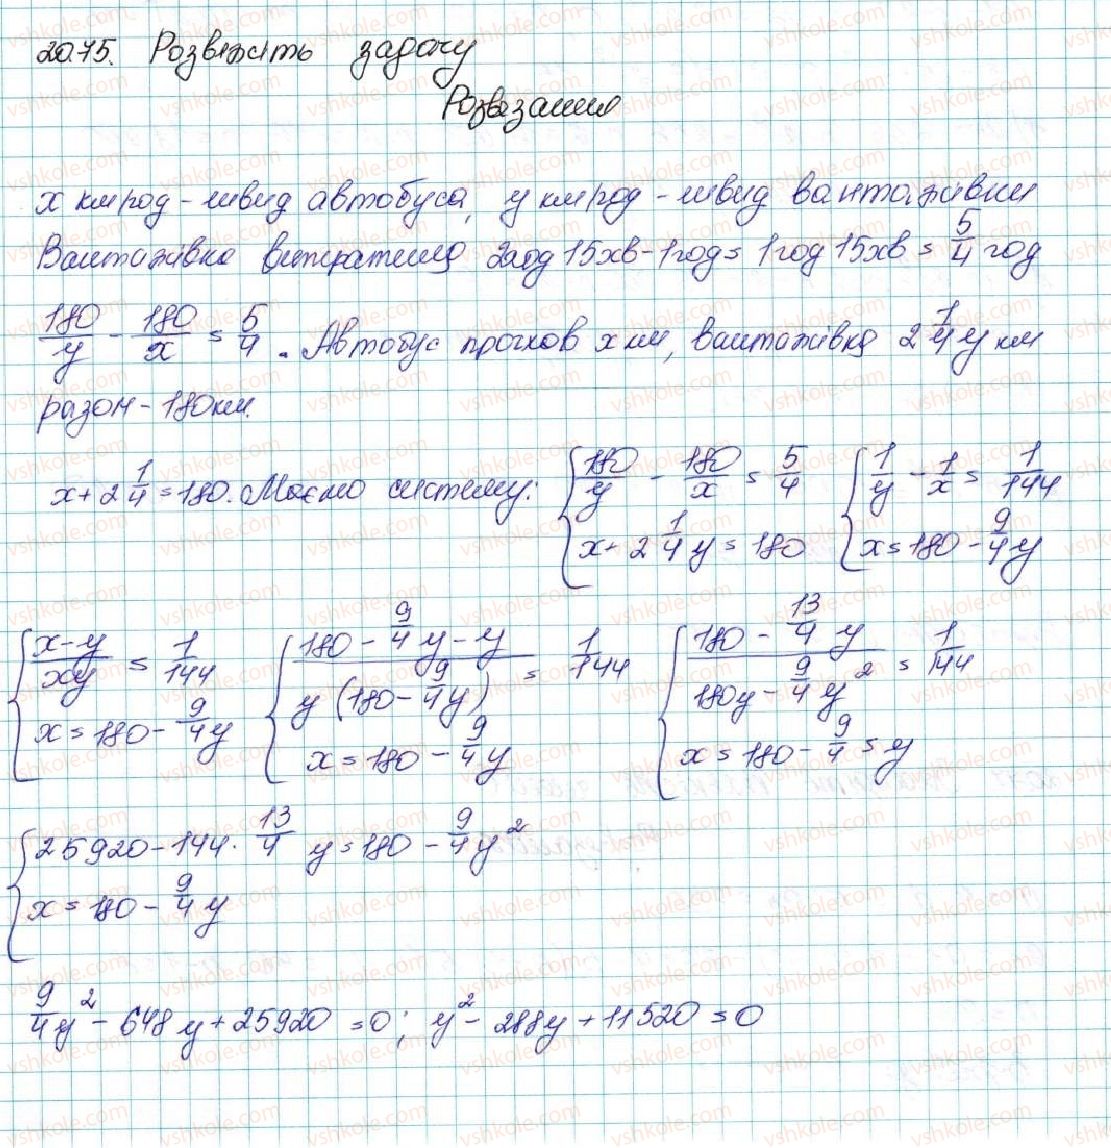 20.75. Розв'яжіть задачу
Розв'язання
x км/год - швид автобуса, y км/год - швид вантажівки
Вантажівка витратила 2 год 15хв - 1 год = 1 год 15хв = 5/4 год
180/y - 180/x = 5/4. Автобус проїхов x км, вантажівка 2 1/4 y км
разом - 180 км.
x + 2 1/4 = 180. Маємо систему: { 180/y - 180/x = 5/4; x + 2 1/4 y = 180 { 1/y - 1/x = 1/144; x = 180 - 9/4 y
{ (x-y)/(xy) = 1/144; x = 180 - 9/4 y { (180 - 9/4 y - y)/(y(180 - 9/4 y)) = 1/144; x = 180 - 9/4 y { (180 - 13/4 y)/(180y - 9/4 y²) = 1/144; x = 180 - 9/4 = y
{ 25920 - 144 · 13/4 y = 180 - 9/4 y²; x = 180 - 9/4 y
9/4 y² - 648y + 25920 = 0; y² - 288y + 11520 = 0